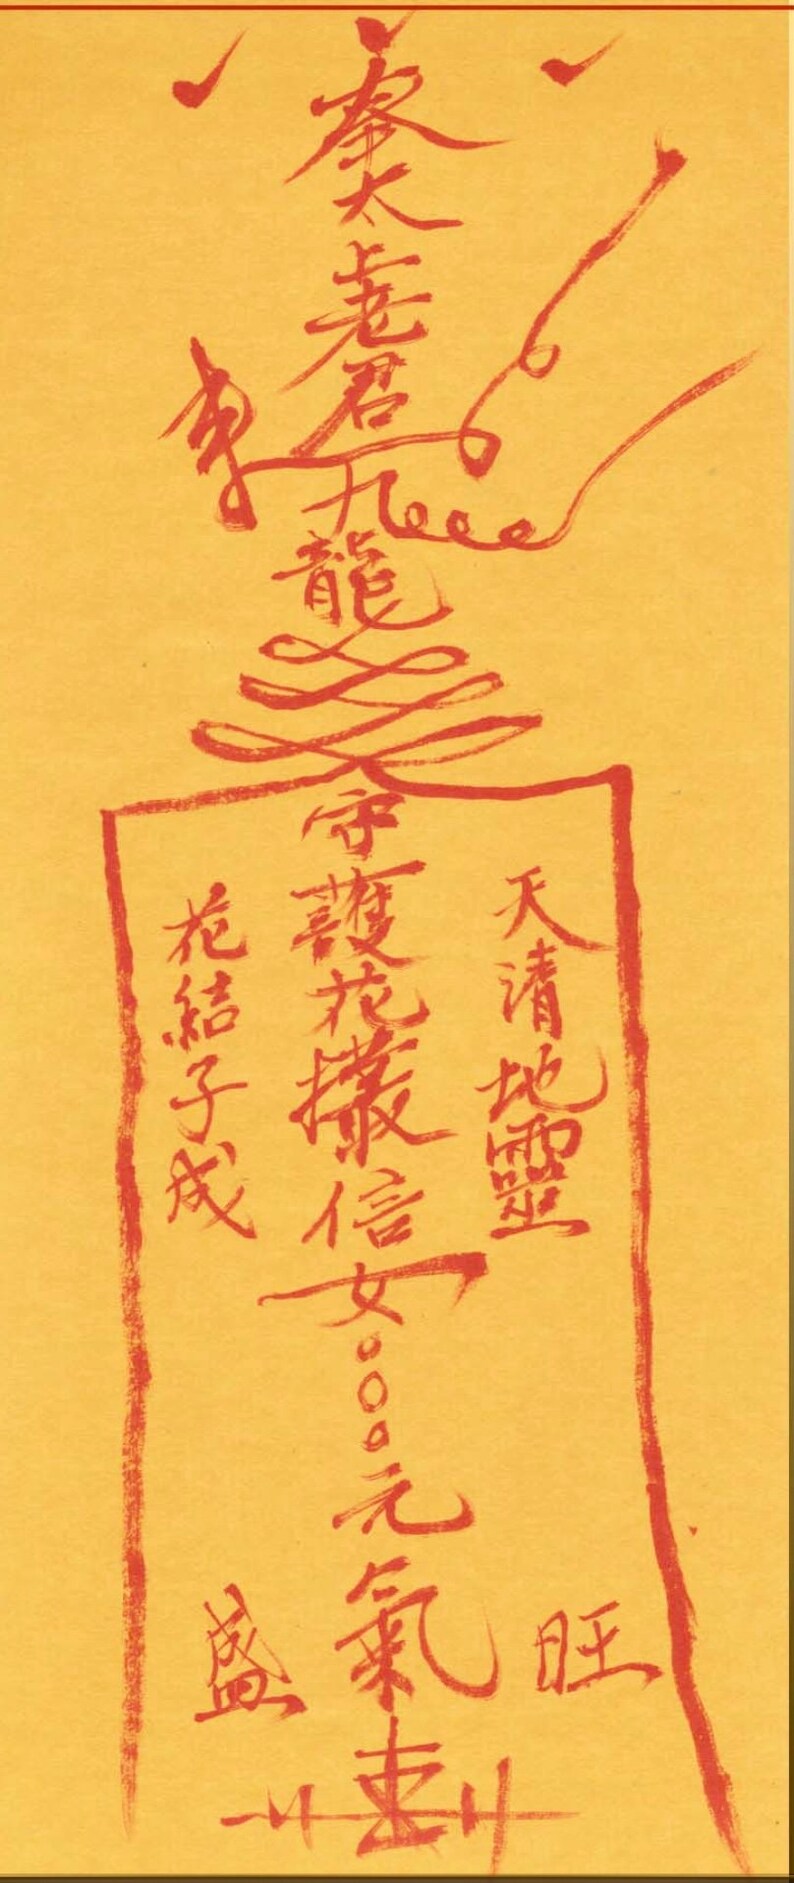 奉太上老君
九龍
守護花叢信女○○○元氣
天清地靈
花結子成
旺
盛